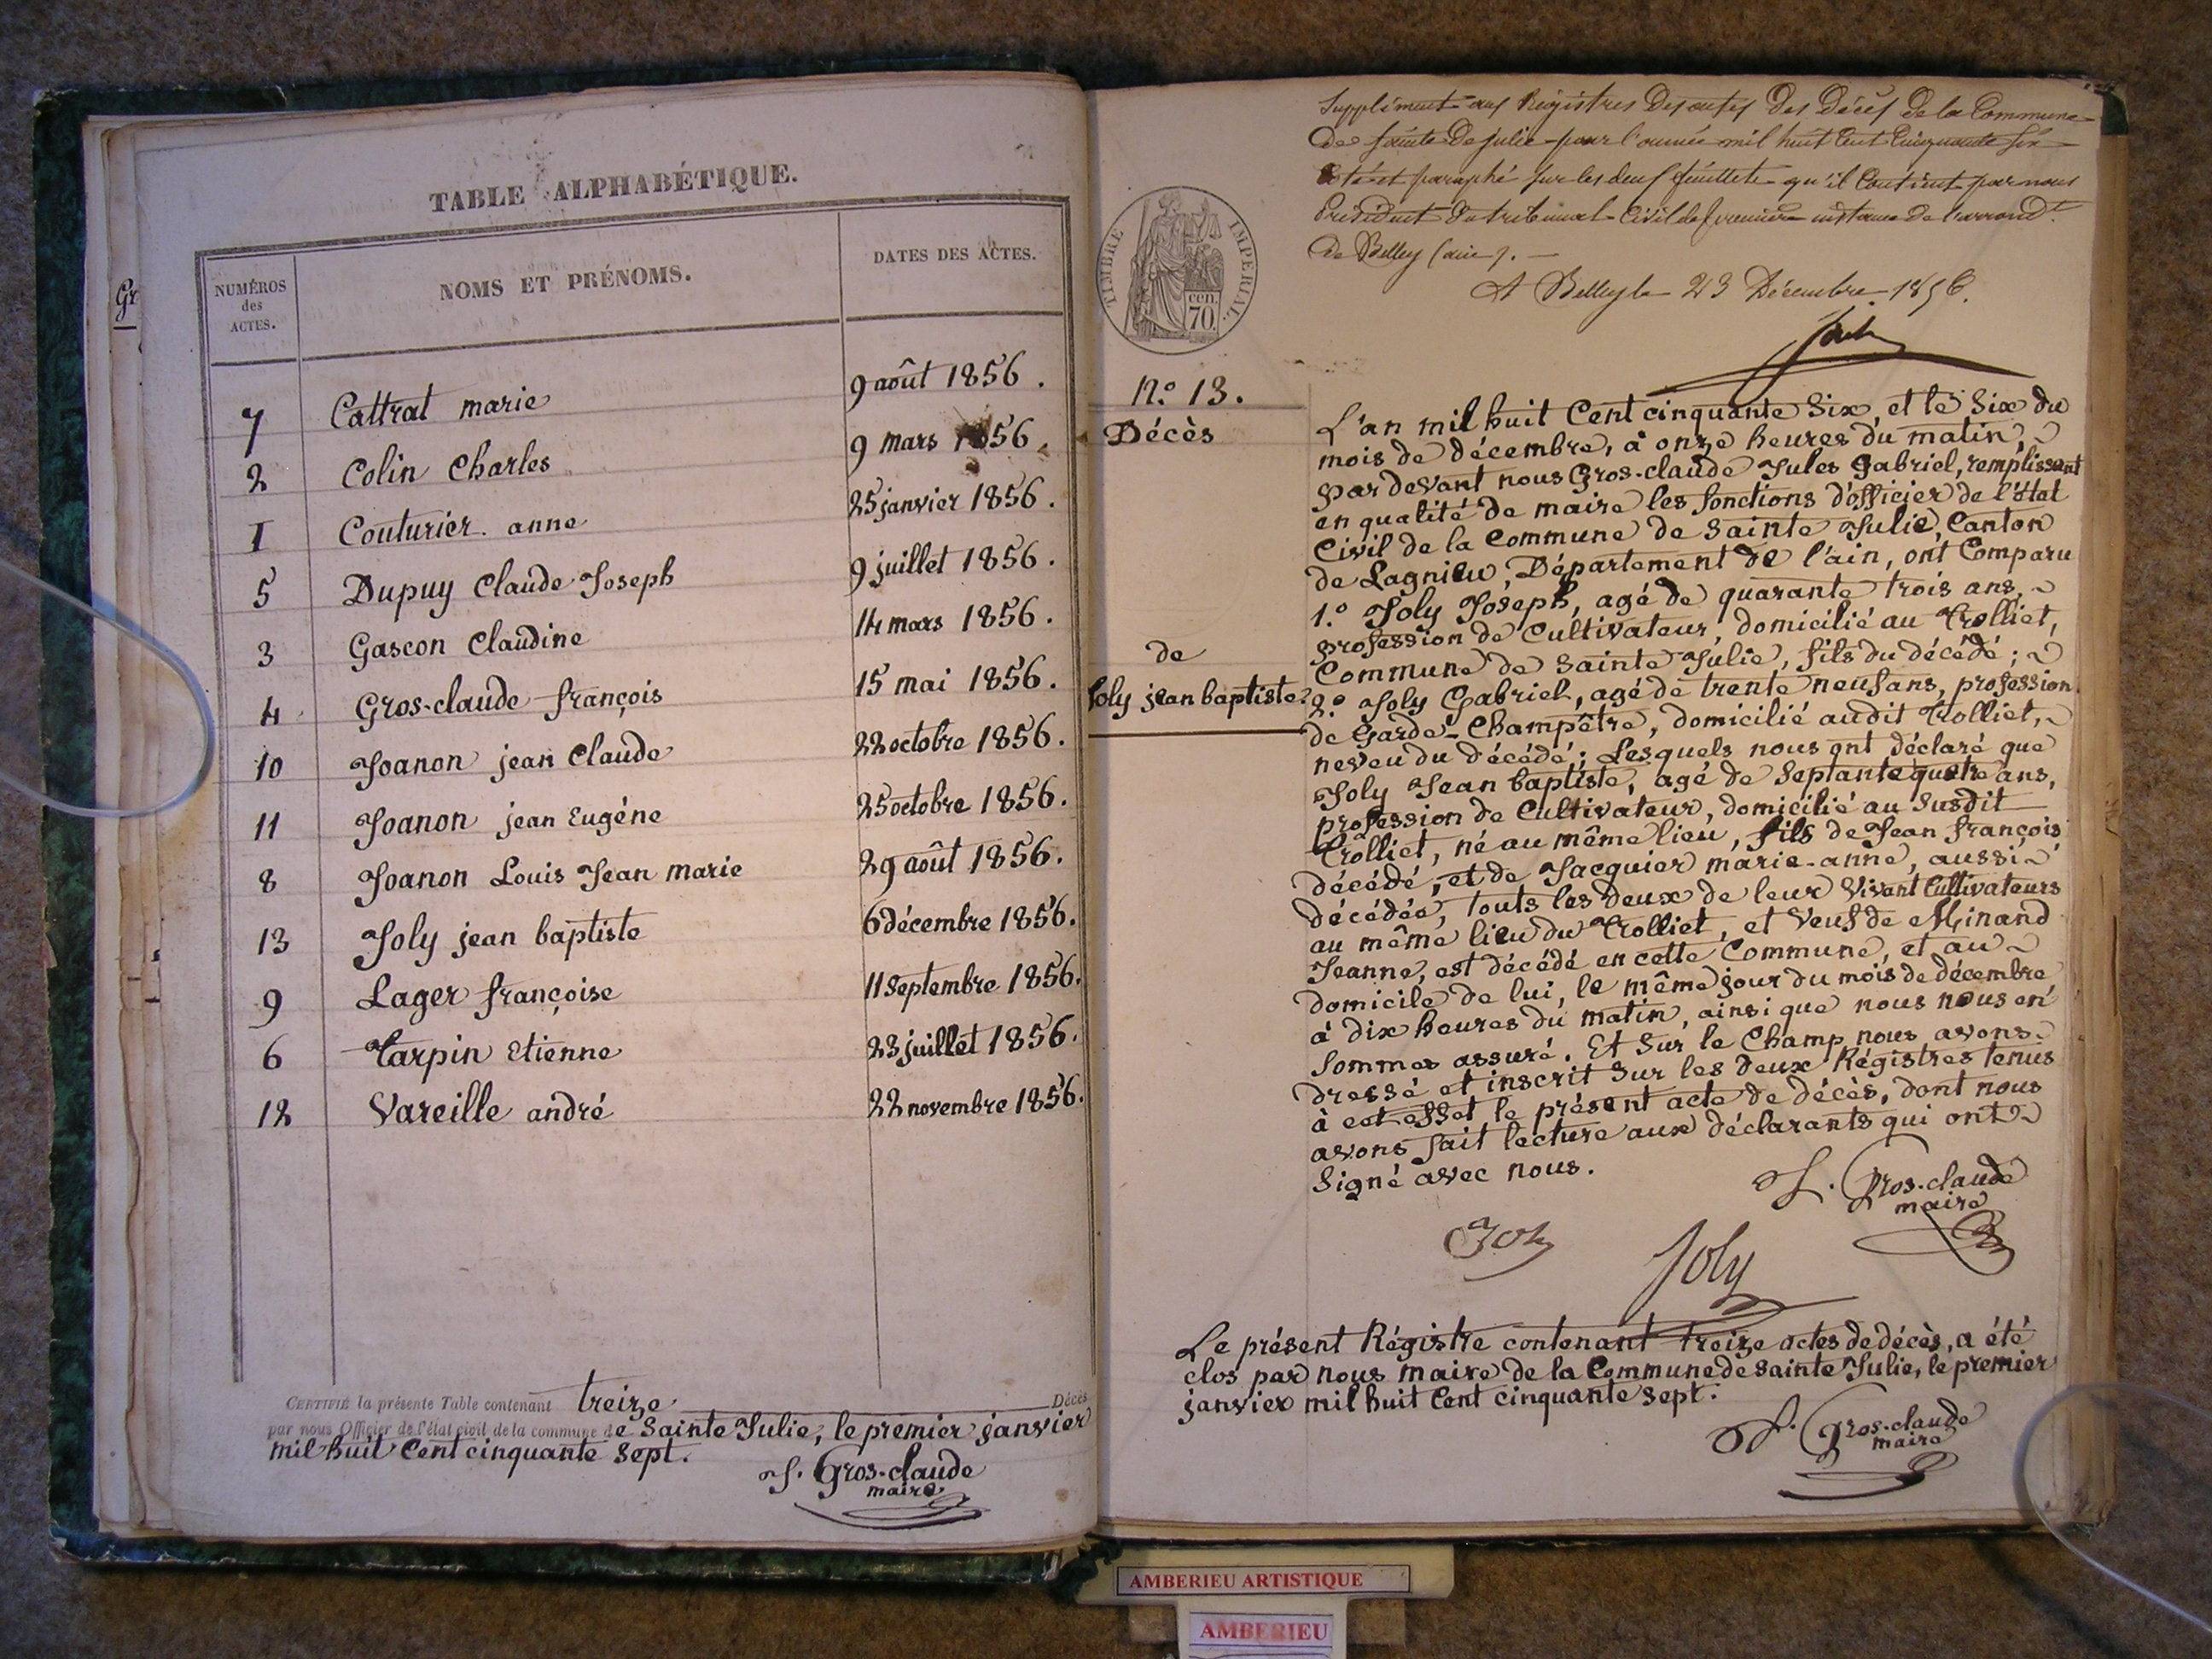 Gr
TABLE ALPHABÉTIQUE.
NUMÉROS des ACTES.
NOMS ET PRÉNOMS.
DATES DES ACTES.
7 Cattrat marie 9 août 1856.
2 Colin Charles 9 mars 1856.
1 Couturier anne 25 janvier 1856.
5 Dupuy Claude Joseph 9 juillet 1856.
3 Gascon Claudine 14 mars 1856.
4 Gros-claude françois 15 mai 1856.
10 Joanon jean Claude 22 octobre 1856.
11 Joanon jean Eugéne 25 octobre 1856.
8 Joanon Louis Jean marie 29 août 1856.
13 Joly jean baptiste 6 décembre 1856.
9 Lager françoise 11 Septembre 1856.
6 Tarpin Etienne 23 juillet 1856.
12 Vareille andré 22 novembre 1856.
CERTIFIÉ la présente Table contenant treize Décès
par nous Officier de l'état civil de la commune de Sainte Julie, le premier janvier
mil huit Cent cinquante Sept.
J. Gros-claude
maire
Supplément aux Registres des actes des Décès de la Commune
de Sainte Julie pour l'année mil huit Cent Cinquante Six
Coté et paraphé sur les deux feuillets qu'il Contient par nous
Président du tribunal Civil de première instance de l'arrond.t
de Belley (ain).
A Belley le 23 Décembre 1856.
TIMBRE IMPERIAL
70 cen.
N.o 13.
Décès
de
Joly jean baptiste.
L'an mil huit Cent cinquante Six, et le Six du
mois de décembre, à onze heures du matin,
par devant nous Gros-claude Jules Gabriel, remplissant
en qualité de maire les fonctions d'officier de l'état
Civil de la Commune de Sainte Julie, Canton
de Lagnieu, Département de l'ain, ont Comparu
1.o Joly Joseph, agé de quarante trois ans,
profession de Cultivateur, domicilié au Trolliet,
Commune de Sainte Julie, fils du décédé;
2.o Joly Gabriel, agé de trente neuf ans, profession
de Garde-Champêtre, domicilié audit Trolliet,
neveu du décédé; Lesquels nous ont déclaré que
Joly Jean baptiste, agé de Septante quatre ans,
profession de Cultivateur, domicilié au Susdit
Trolliet, né au même lieu, fils de Jean françois
décédé, et de Jacquier marie-anne, aussi
décédée, touts les deux de leur Vivant Cultivateurs
au même lieu du Trolliet, et Veuf de Minand
Jeanne, est décédé en cette Commune, et au
domicile de lui, le même jour du mois de décembre
à dix heures du matin, ainsi que nous nous en
Sommes assuré. Et Sur le Champ nous avons
dressé et inscrit Sur les deux Régistres tenus
à cet effet le présent acte de décès, dont nous
avons fait lecture aux déclarants qui ont
Signé avec nous.
J. Gros-claude
maire
Joly
Joly
Le présent Régistre contenant treize actes de décès, a été
clos par nous maire de la Commune de Sainte Julie, le premier
janvier mil huit Cent cinquante Sept.
J. Gros-claude
maire
AMBERIEU ARTISTIQUE
AMBERIEU